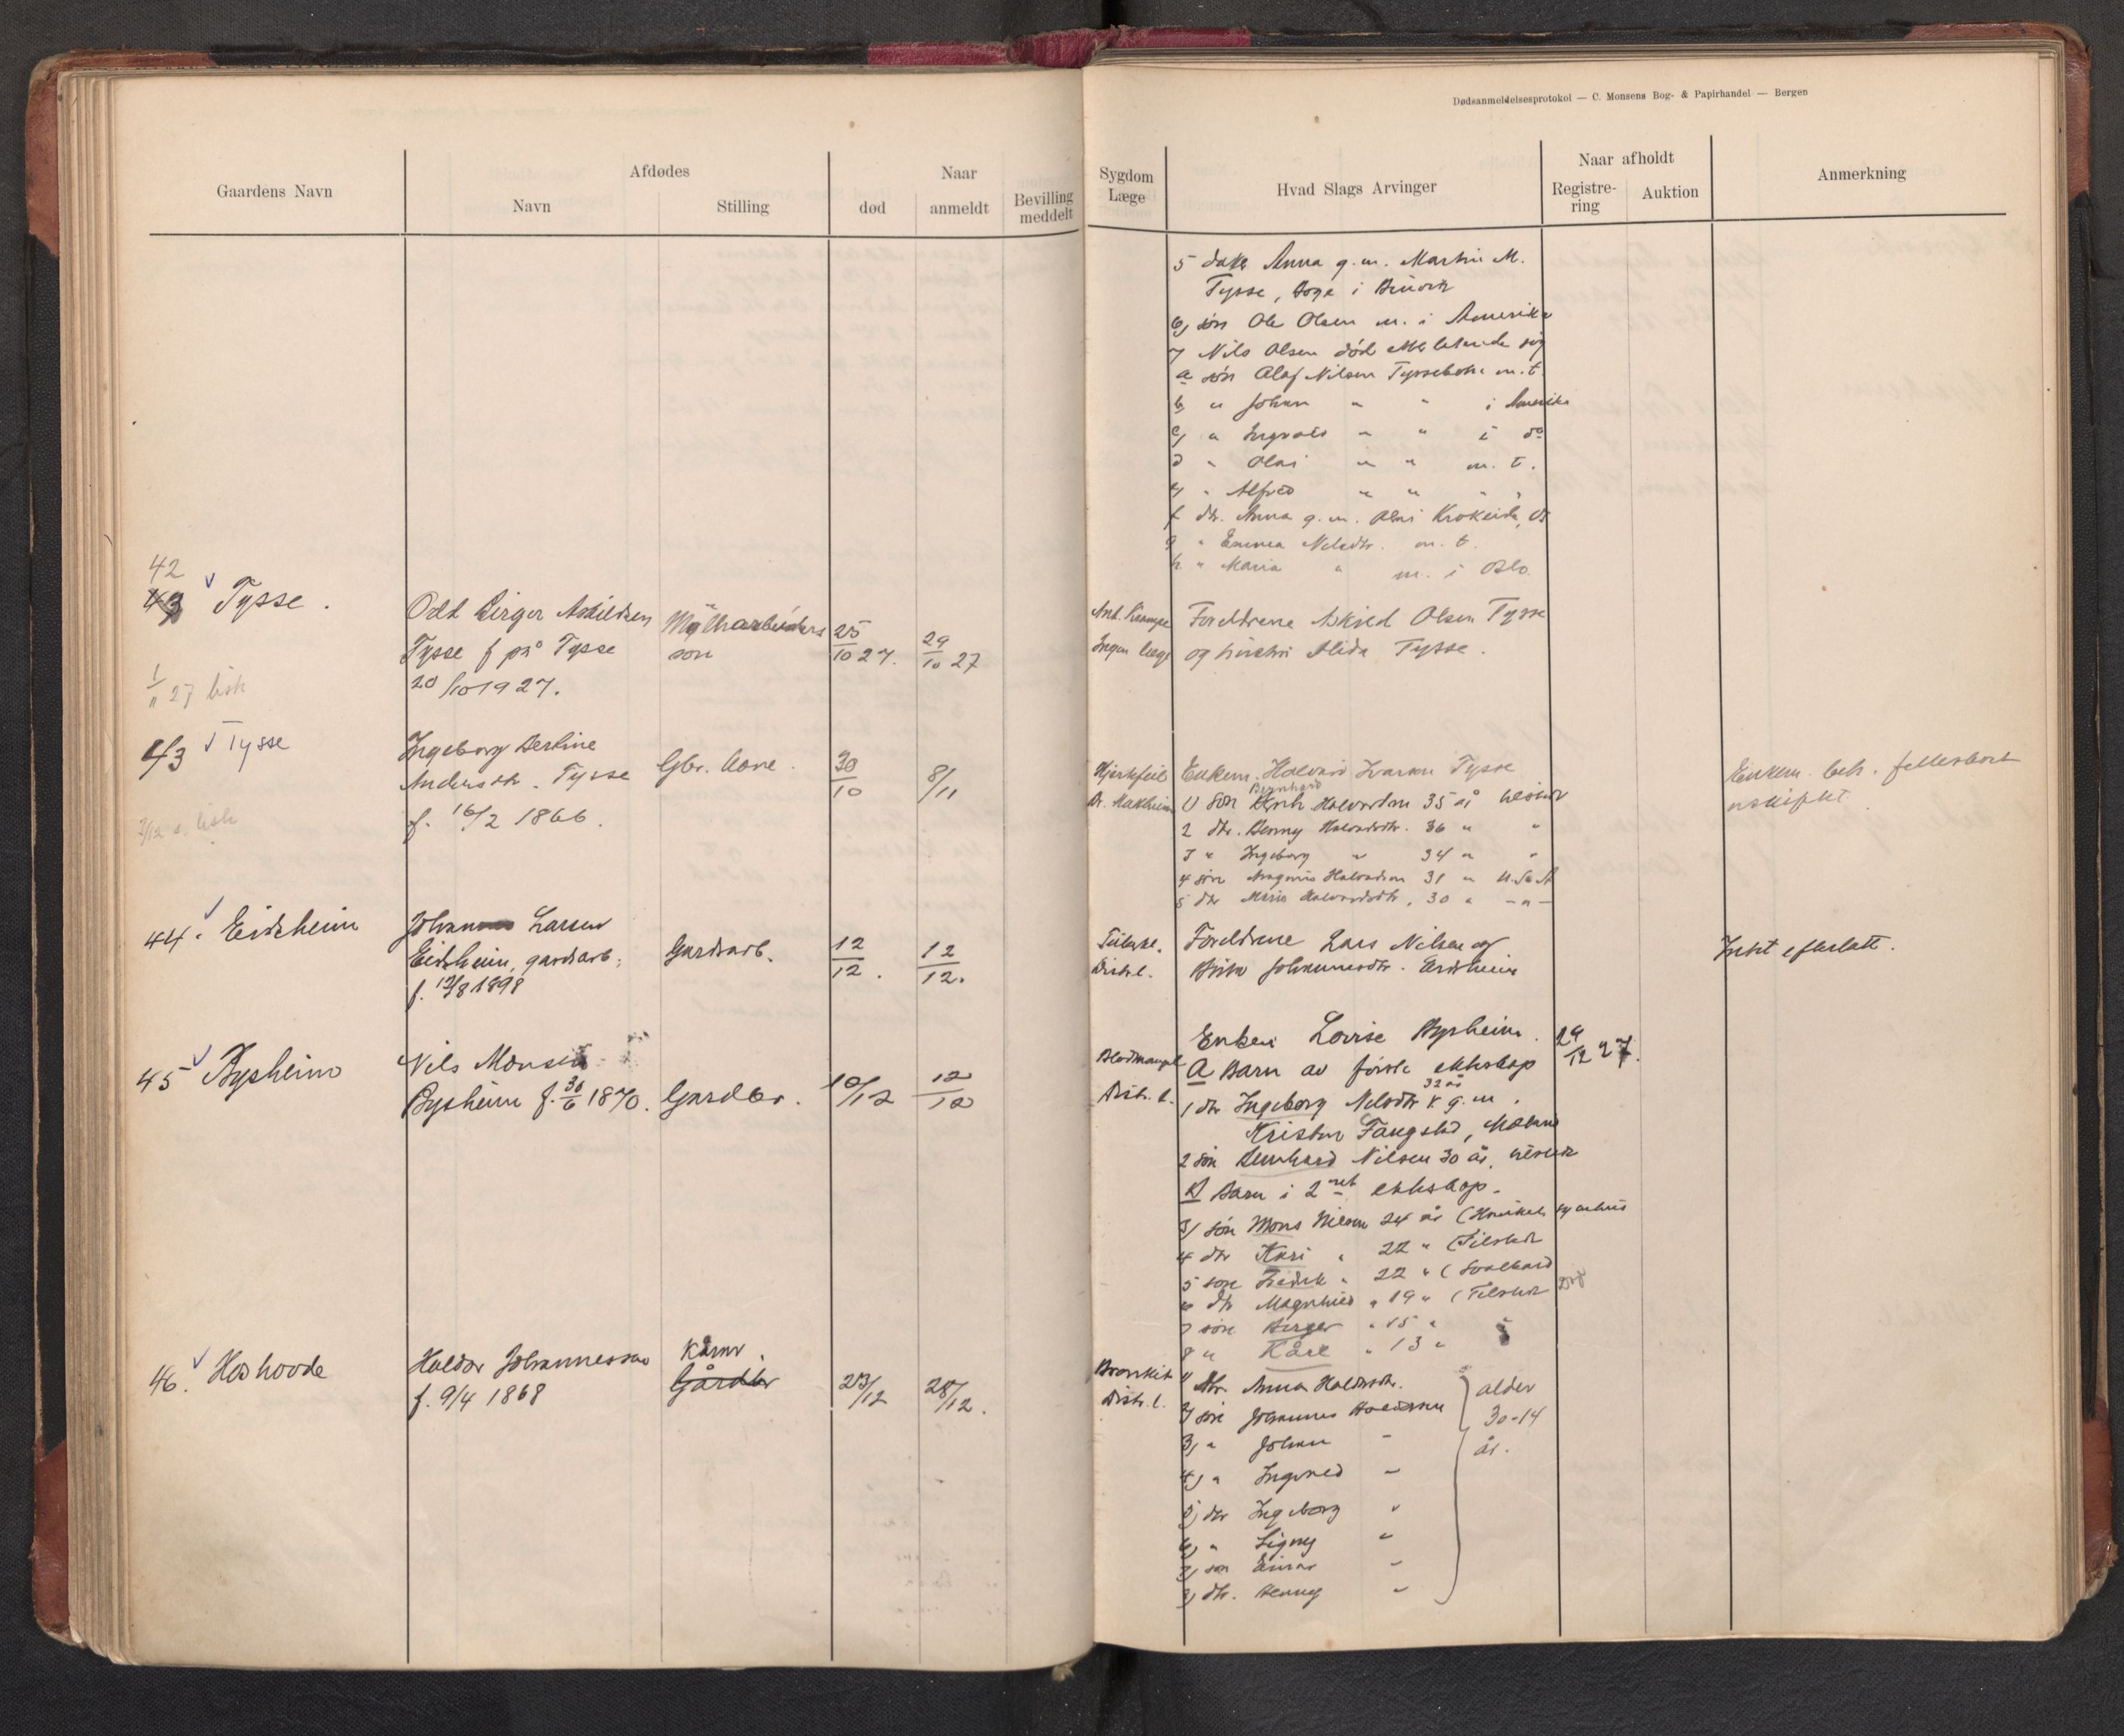 Dødsanmeldelsesprotokol — C. Monsens Bog- & Papirhandel — Bergen
Gaardens Navn
Afdødes
Navn
Stilling
Naar
død
anmeldt
Bevilling meddelt
Sygdom Læge
Hvad Slags Arvinger
Naar afholdt
Registre-ring
Auktion
Anmerkning
5 Anna g.m. Martin M.
Tysse, i
6) søn Ole Olsen m. i Amerika
7 Nils Olsen død
a søn Olaf Nilsen m.t.
b, " Johan " " i Amerika
c, " Ingvald " " i do
d " Olai " " m. t.
" Alfred " " " "
f dtr. Anna g.m. Olai Krokeide, Os
g " Emma Nilsdtr. m. t.
h " Maria " m. i Oslo
42
43 Tysse.
Odd Birger Askildsen
Tysse f på Tysse
20/10 1927.
son
25/10 27.
29/10 27
Ingen læge
Foreldrene Askild Olsen Tysse
og hustru Alida Tysse.
1/11 27
43 Tysse
Ingeborg Bertine
Andersdtr. Tysse
f. 16/2 1866.
Gbr. kone.
30/10
8/11
Hjertefeil
Enkem. Halvard Ivarsen Tysse
Bernhard
1) søn Halvardsen 35 år
2 dtr. Benny Halvardsdtr. 36 " "
3 " Ingeborg " 34 " "
4 søn Magnus Halvardsen 31 " U.S.A
5 dtr Halvardsdtr. 30 " -"-
Enkem. beh. fellesboet
uskiftet
44. Eidsheim
Larsen
Eidsheim, gardsarb.
f. 12/8 1898
Gardsarb.
12/12.
12/12.
Distr.l.
Foreldrene Lars Nilsen og
Brita Johannesdtr. Eidsheim
Intet efterlatt.
45 Bysheim
Nils Monsen
Bysheim f. 30/6 1870.
Gardbr.
10/12
12/12
Blodmangel
Distr. l.
Enken Lovise Bysheim.
29/12 27.
A Barn av første ekteskap
32 år
1 dtr Ingeborg Nilsdtr g.m.
Fangstad,
2 søn Bernhard Nilsen 30 år,
B Barn i 2net ekteskap.
3) søn Mons Nilsen 24 år
4 dtr Kari " 22 "
5 søn Fredrik " 22 " (Svalbard
6 dtr Magnhild " 19 "
7 søn Berger " 15 "
8 " Kåre " 13 "
46. Hoshovde
Haldor Johannessen
f. 9/4 1868
Kårm.
Gårdbr
23/12
28/12.
Bronkit
Distr. l.
1) dtr. Anna Haldorsdtr.
2) søn Johannes Haldorsen
3) " Johan "
4) " Ingvald "
5) dtr Ingeborg "
6) " Signy "
7) søn Einar "
8) dtr. Benny "
alder
30-14
år.